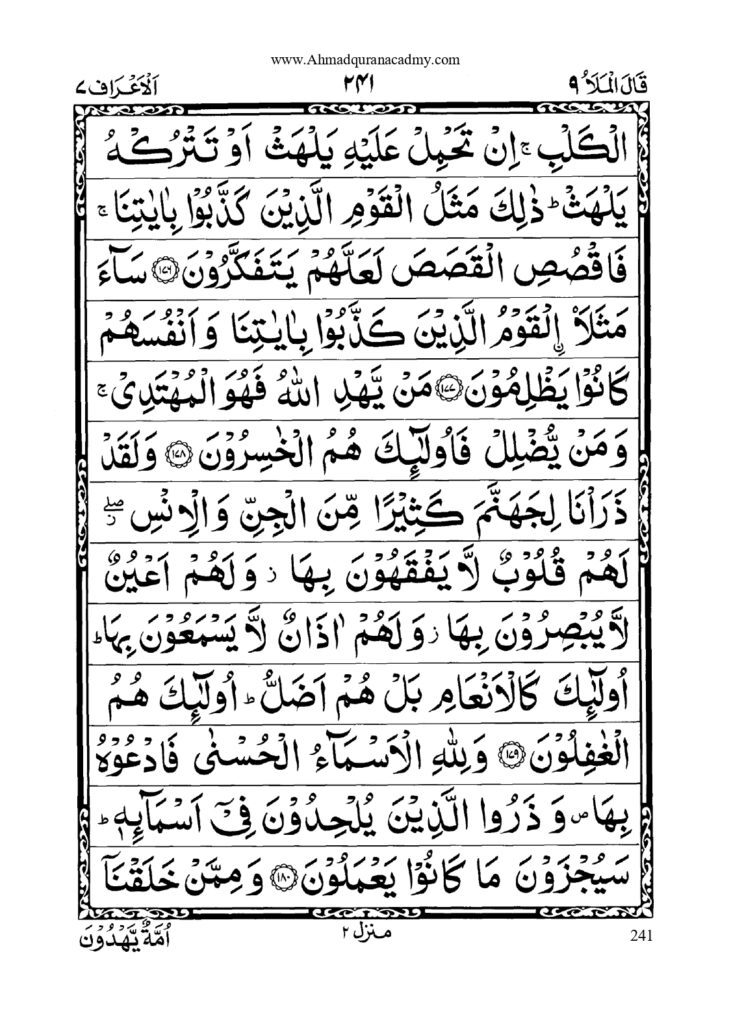 www.Ahmadquranacadmy.com
قَالَ الْمَلَاُ ۹ ۲۴۱ اَلْاَعْرَاف ۷
الْكَلْبِ ۚ اِنْ تَحْمِلْ عَلَيْهِ يَلْهَثْ اَوْ تَتْرُكْهُ
يَلْهَثْ ؕ ذٰلِكَ مَثَلُ الْقَوْمِ الَّذِيْنَ كَذَّبُوْا بِاٰيٰتِنَا ۚ
فَاقْصُصِ الْقَصَصَ لَعَلَّهُمْ يَتَفَكَّرُوْنَ ﴿۱۷۶﴾ سَآءَ
مَثَلَاۨ الْقَوْمُ الَّذِيْنَ كَذَّبُوْا بِاٰيٰتِنَا وَاَنْفُسَهُمْ
كَانُوْا يَظْلِمُوْنَ ﴿۱۷۷﴾ مَنْ يَّهْدِ اللّٰهُ فَهُوَ الْمُهْتَدِىْ ۚ
وَمَنْ يُّضْلِلْ فَاُولٰٓئِكَ هُمُ الْخٰسِرُوْنَ ﴿۱۷۸﴾ وَلَقَدْ
ذَرَاْنَا لِجَهَنَّمَ كَثِيْرًا مِّنَ الْجِنِّ وَالْاِنْسِ ۖ ز
لَهُمْ قُلُوْبٌ لَّا يَفْقَهُوْنَ بِهَا ز وَلَهُمْ اَعْيُنٌ
لَّا يُبْصِرُوْنَ بِهَا ز وَلَهُمْ اٰذَانٌ لَّا يَسْمَعُوْنَ بِهَا ؕ
اُولٰٓئِكَ كَالْاَنْعَامِ بَلْ هُمْ اَضَلُّ ؕ اُولٰٓئِكَ هُمُ
الْغٰفِلُوْنَ ﴿۱۷۹﴾ وَلِلّٰهِ الْاَسْمَآءُ الْحُسْنٰى فَادْعُوْهُ
بِهَا ص وَذَرُوا الَّذِيْنَ يُلْحِدُوْنَ فِىْۤ اَسْمَآئِهٖ ؕ
سَيُجْزَوْنَ مَا كَانُوْا يَعْمَلُوْنَ ﴿۱۸۰﴾ وَمِمَّنْ خَلَقْنَاۤ
اُمَّةٌ يَّهْدُوْنَ منزل ۲ 241